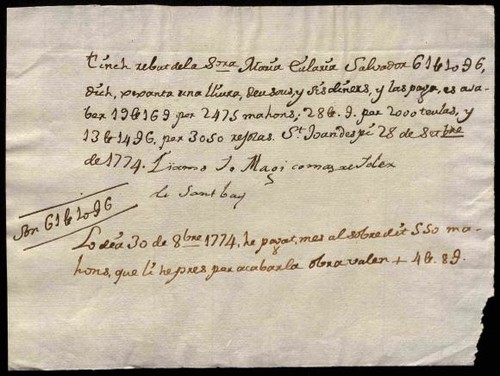 Tinch rebut de la Sra Maria Eularia Salvador 61℔10s6,
dich, xexanta una lliura, deu sous, y sis diners, y los paga, es a sa-
ber 19℔16s per 2475 mahons; 28℔ s. per 2000 teulas, y
13℔14s6, per 3050 rejolas. St Joandespi 28 de 8bre
de 1774.
de Santboy
Son 61℔10s6
Lo dia 30 de 8bre 1774, he pagat, mes al sobre dit 550 ma-
hons, que li he pres per acabar la obra valen + 4℔. 8s.